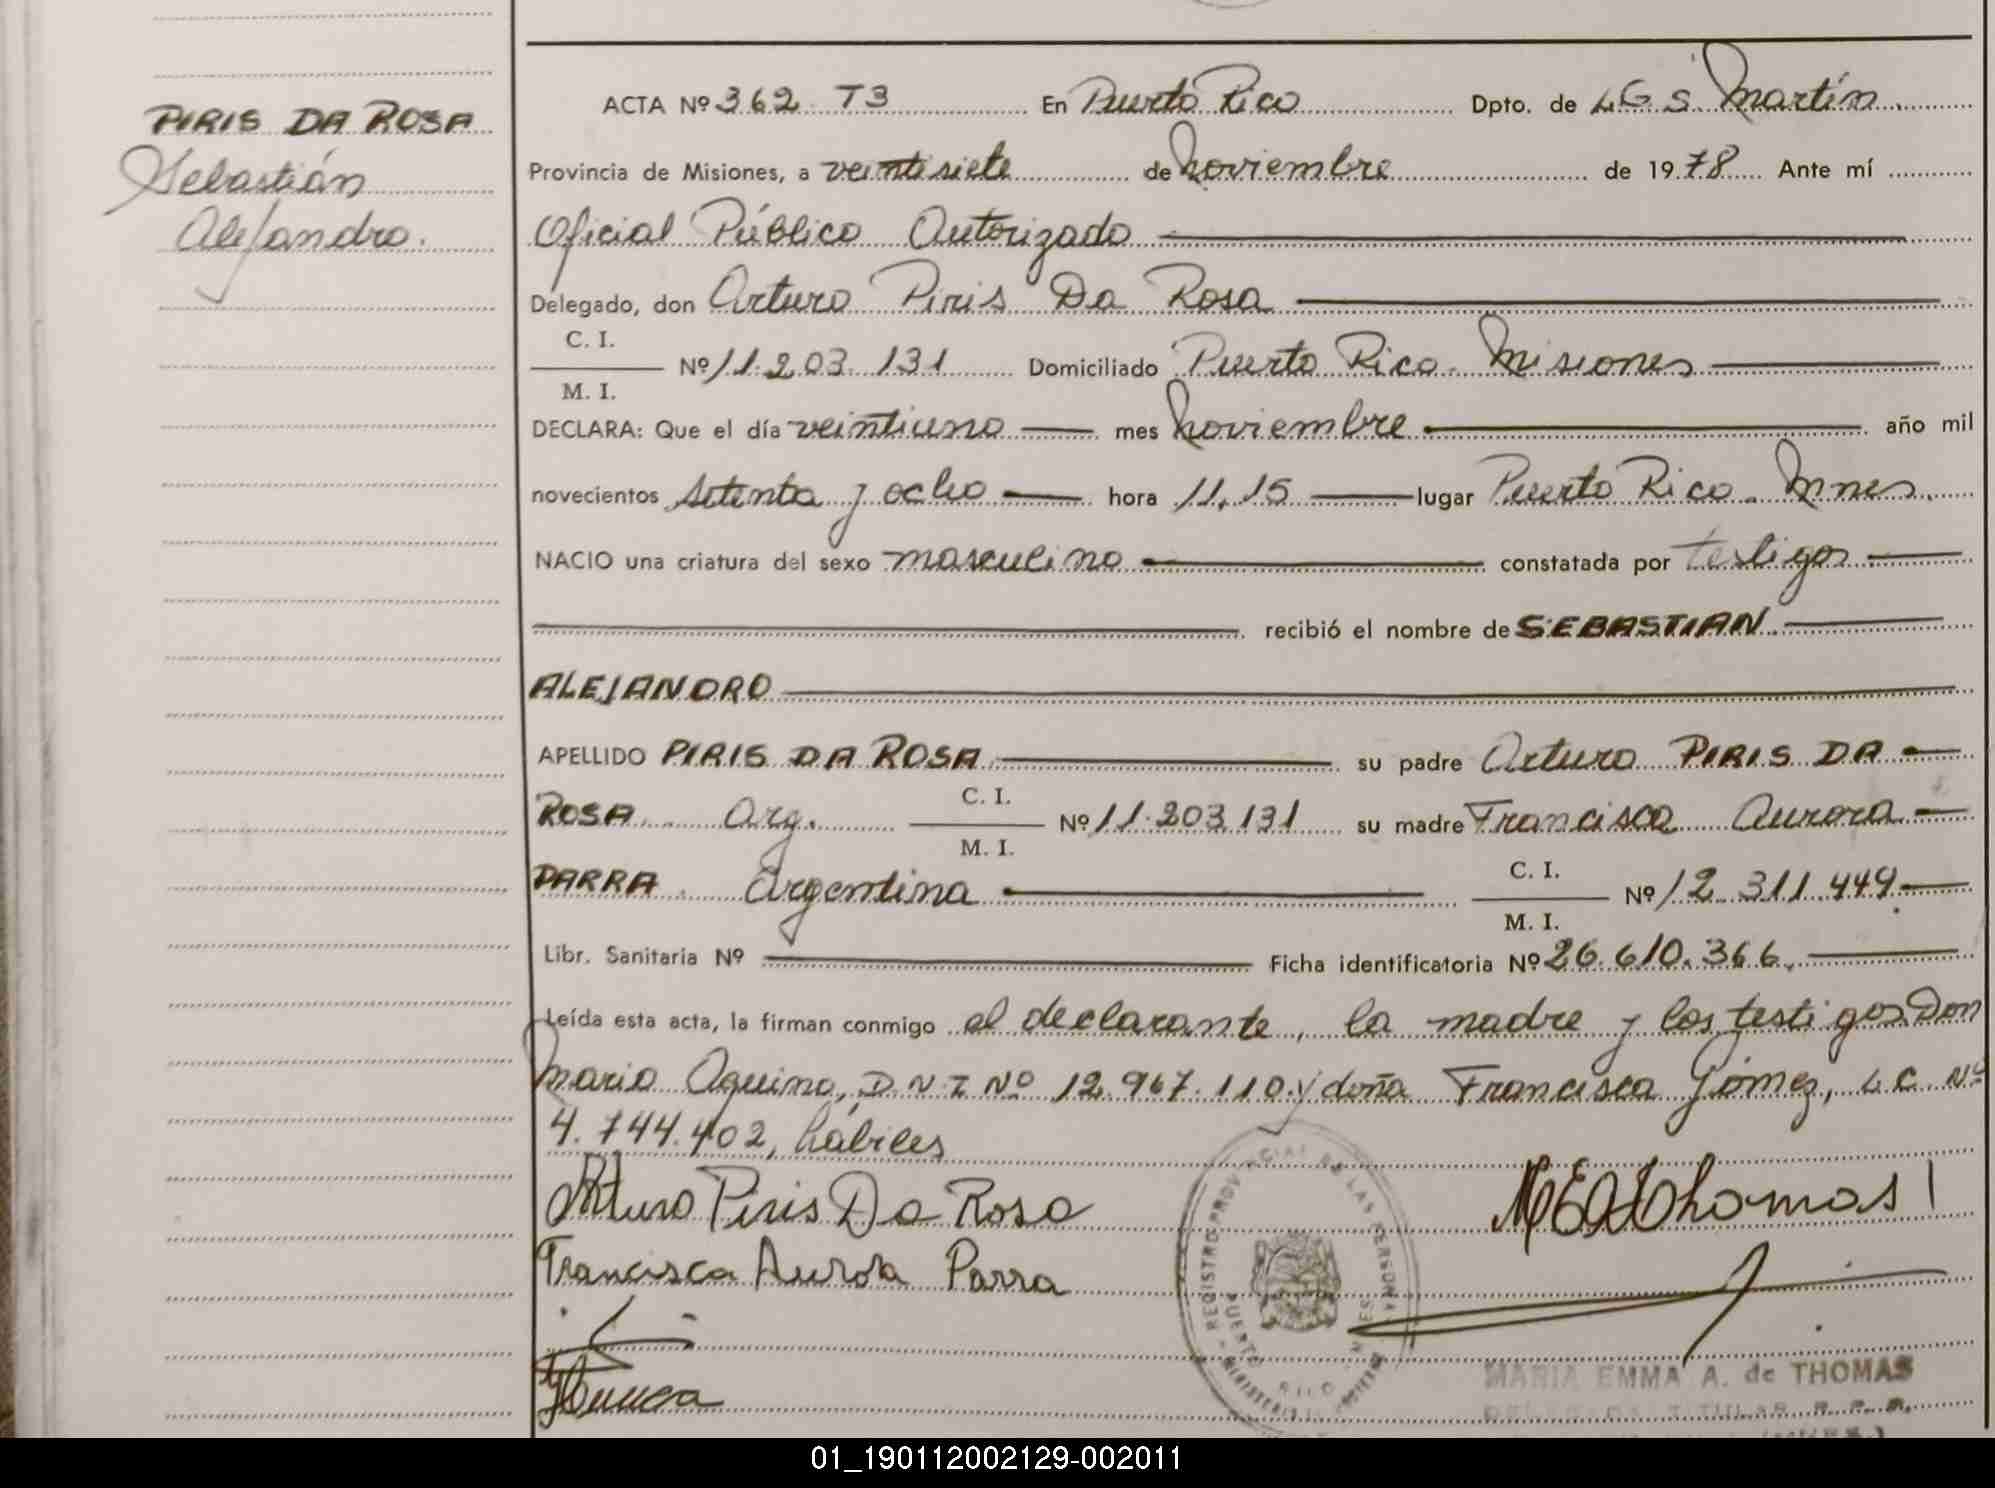 PIRIS DA ROSA
Sebastián
Alejandro.
ACTA Nº 362 T3 En Puerto Rico Dpto. de L G S Martín.
Provincia de Misiones, a veintisiete de noviembre de 1978 Ante mí
Oficial Público Autorizado
Delegado, don Arturo Piris Da Rosa
C. I.
Nº 11.203.131 Domiciliado Puerto Rico. Misiones
M. I.
DECLARA: Que el día veintiuno mes noviembre año mil
novecientos setenta y ocho hora 11.15 lugar Puerto Rico. Mnes.
NACIO una criatura del sexo masculino constatada por testigos
recibió el nombre de SEBASTIAN
ALEJANDRO
APELLIDO PIRIS DA ROSA su padre Arturo PIRIS DA
C. I.
ROSA. Arg. Nº 11.203.131 su madre Francisca Aurora
M. I.
C. I.
PARRA. Argentina Nº 12.311.449.
M. I.
Libr. Sanitaria Nº Ficha identificatoria Nº 26.610.366.
Leída esta acta, la firman conmigo el declarante, la madre y los testigos Don
Mario Aquino, D.N.I Nº 12.967.110 y doña Francisca Gómez, L.C. Nº
4.744.402, hábiles
Arturo Piris Da Rosa
Francisca Aurora Parra
REGISTRO PROVINCIAL DE LAS PERSONAS
PUERTO RICO
MARIA EMMA A. de THOMAS
01_190112002129-002011